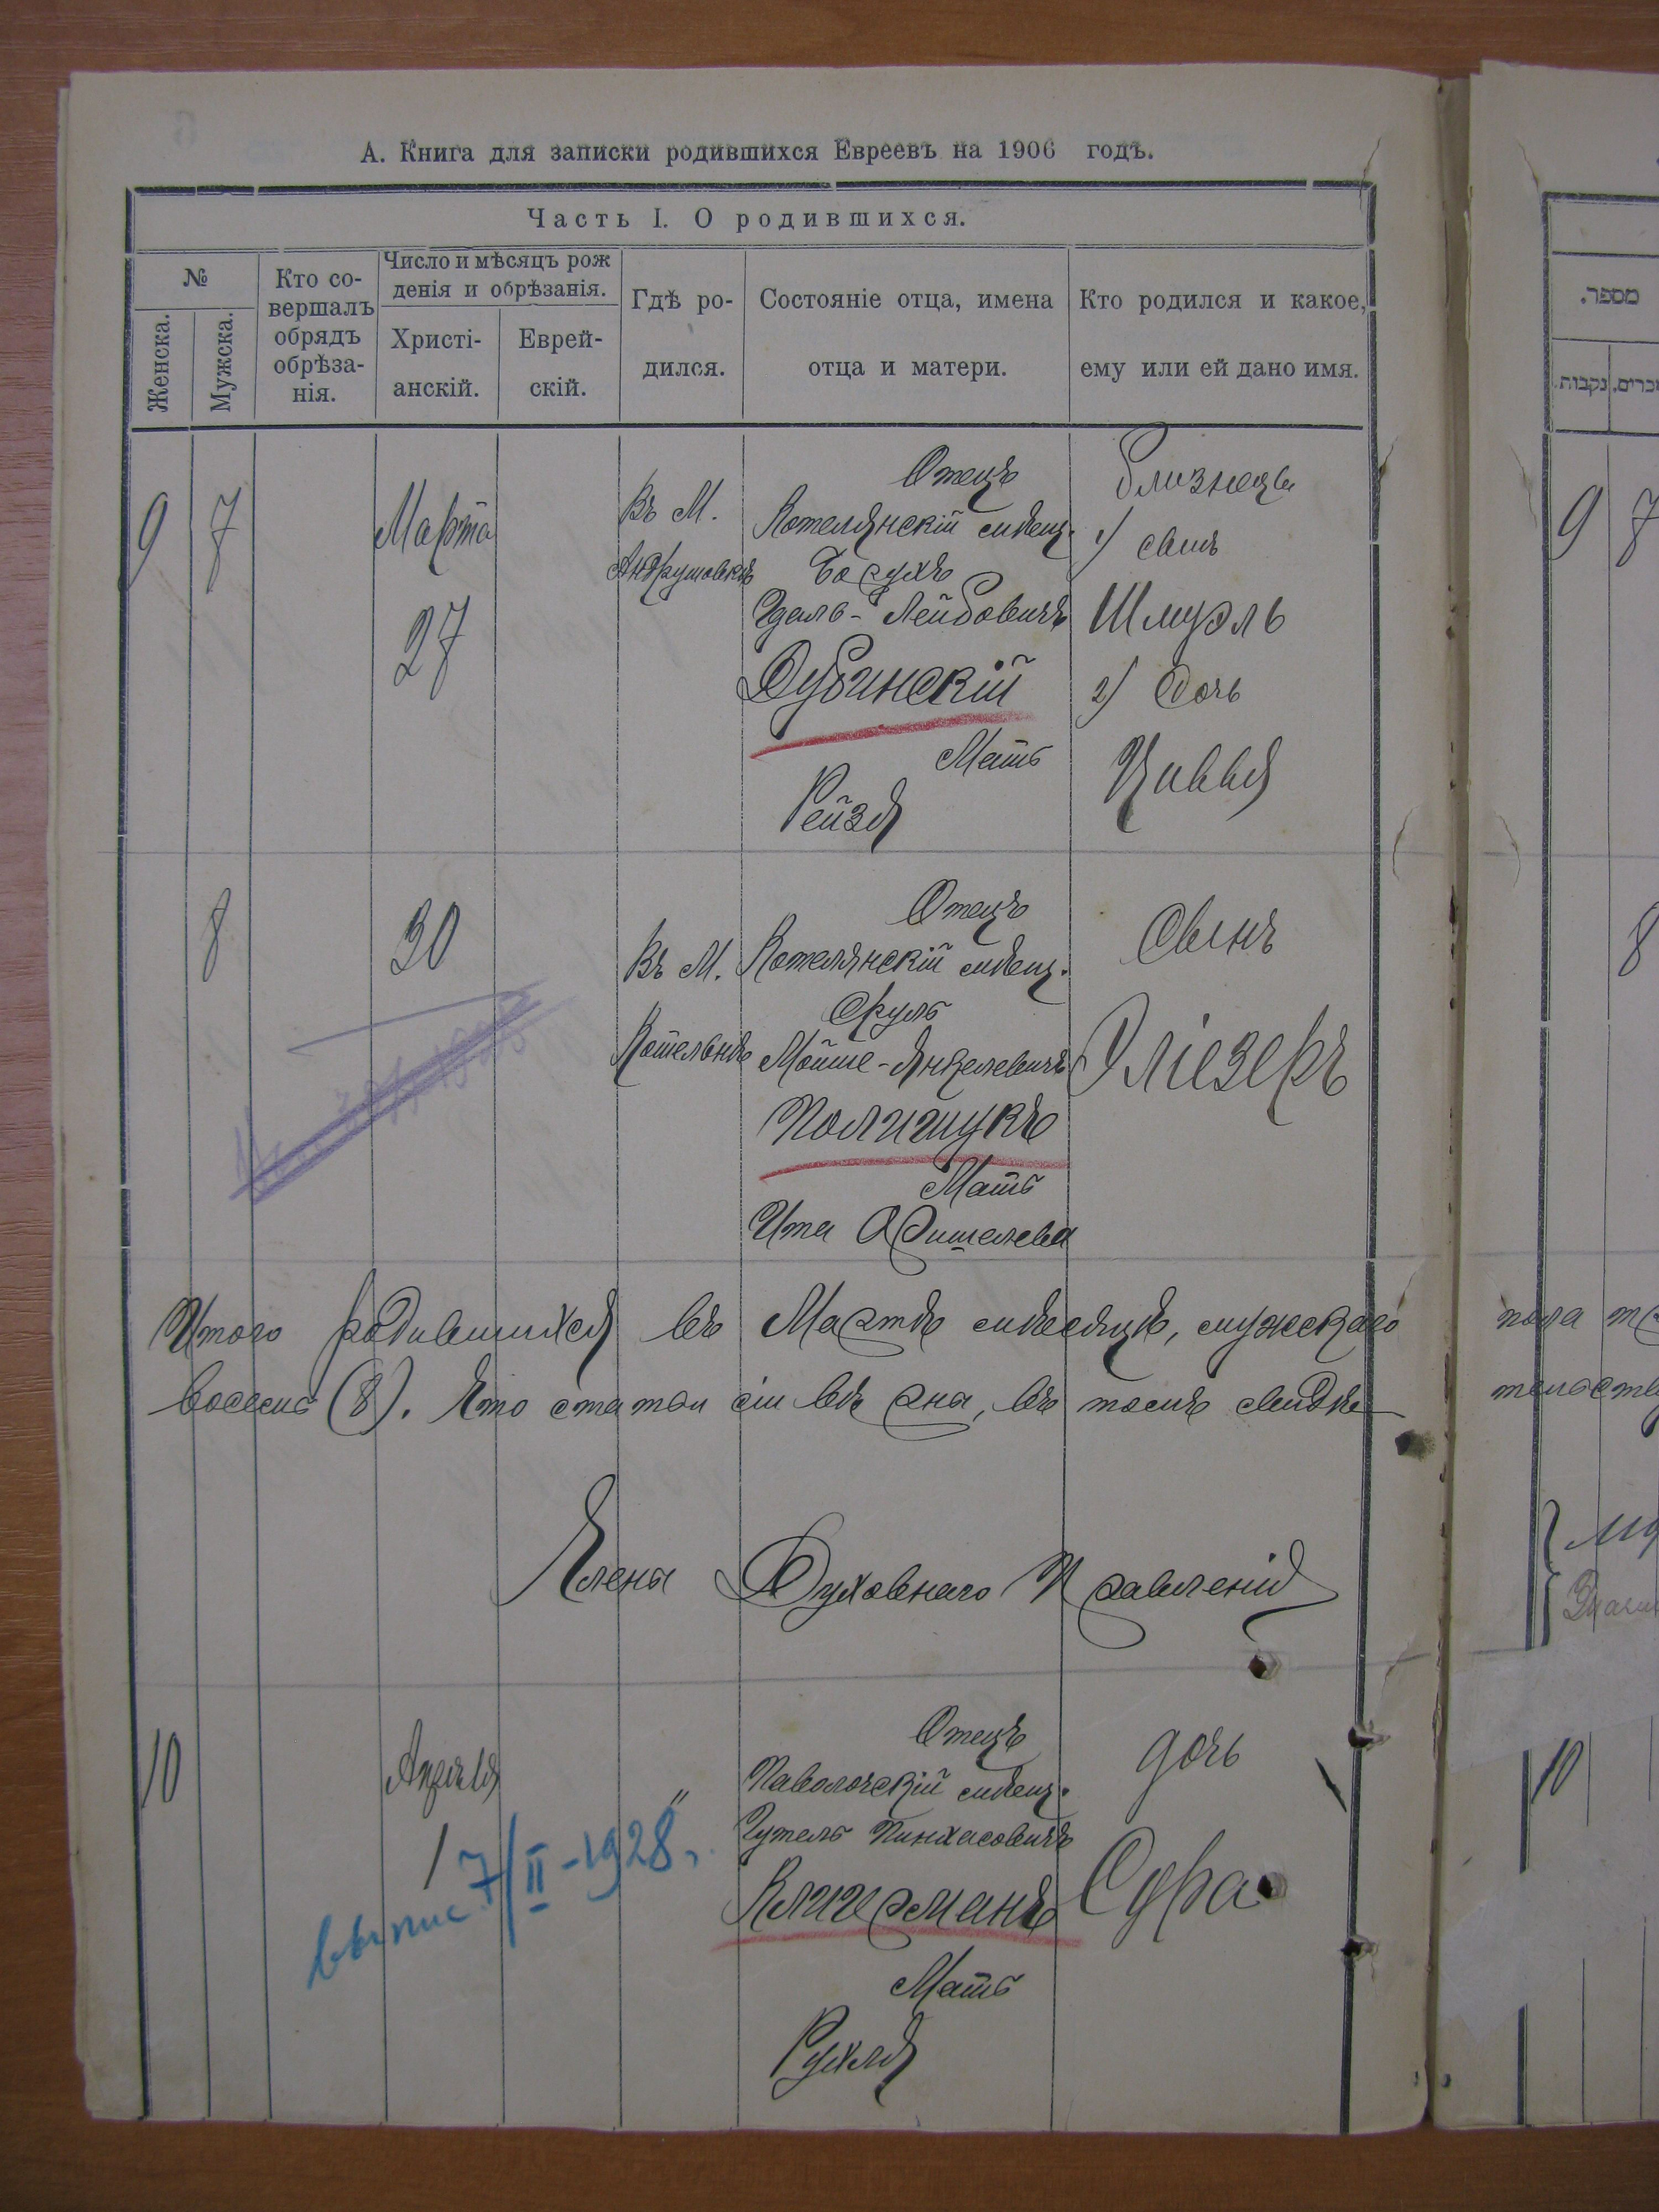 А. Книга для записки родившихся Евреевъ на 1906 годъ.
Часть I. О родившихся.
№
Женска.
Мужска.
Кто со-
вершалъ
обрядъ
обрѣза-
нія.
Число и мѣсяцъ рож
денія и обрѣзанія.
Христі-
анскій.
Еврей-
скій.
Гдѣ ро-
дился.
Состояніе отца, имена
отца и матери.
Кто родился и какое,
ему или ей дано имя.
9
7
Марта
27
Въ М.
Андрушовкѣ
Отецъ
Котелянскій мѣщ.
Борухъ
Удель-Лейбовичъ
Дубинскій
Мать
Рейзя
близнецы
1) сынъ
Шмуэль
2) дочь
Цивья
8
30
Въ М.
Котельнѣ
Отецъ
Котелянскій мѣщ.
Сруль
Мойше-Янкелевичъ
Полищукъ
Мать
Ита
Сынъ
Эліезеръ
Итого родившихся въ Мартѣ мѣсяцѣ, мужскаго
восемь (8). Что статьи сіи вѣрны, въ томъ свидѣ-
Члены Духовнаго Правленія
10
Апрѣля
1
"
Отецъ
Паволочскій мѣщ.
Пинхасовичъ
Клигерманъ
Мать
Рухля
дочь
Сура
выпис. 7/II-1928.
מספר.
נקבות
9
7
8
пола
10